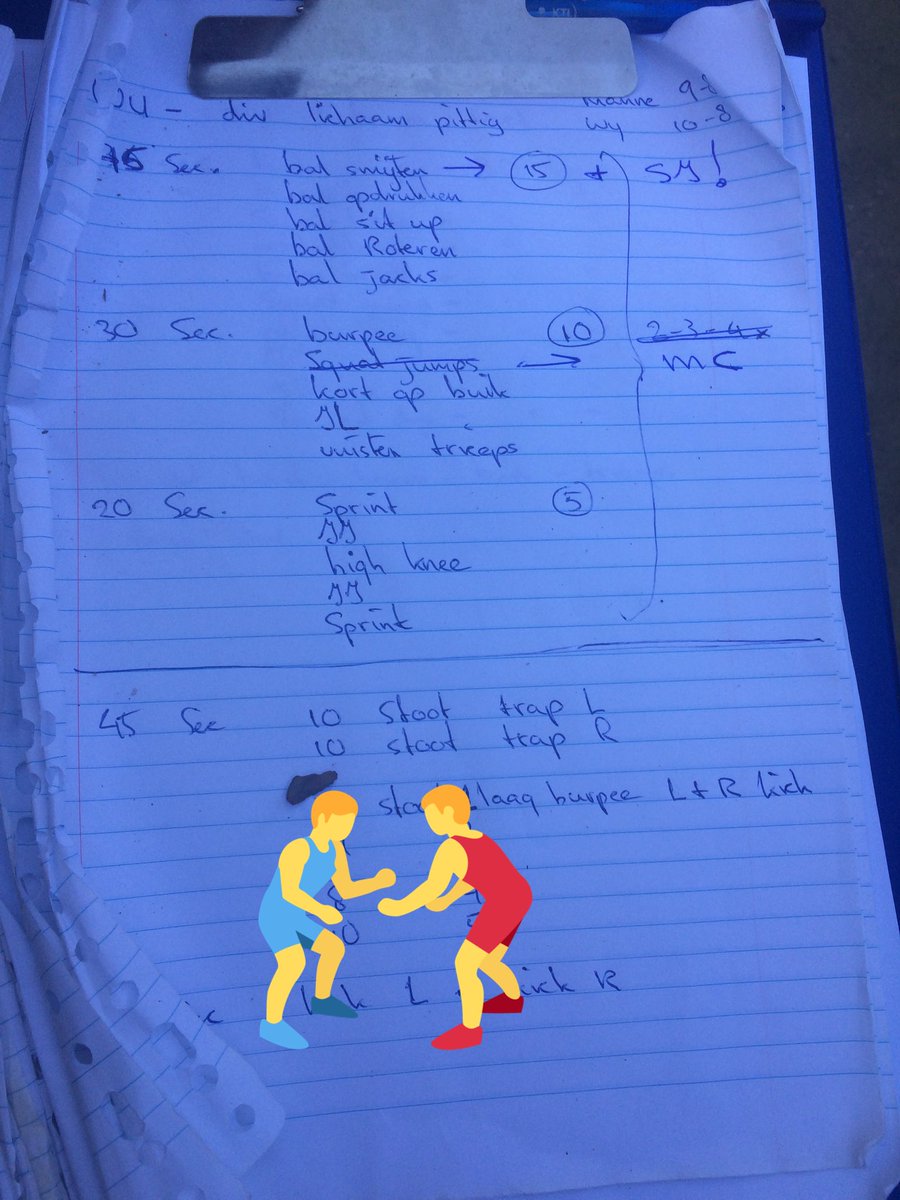 div lichaam pittig
Manne 9-8
wy 10-8
Sec. bal smijten → 15 + SJ!
bal opdrukken
bal sit up
bal Roteren
bal jacks
30 Sec. burpee 10 2-3-4x
Squat jumps → MC
kort op buik
JL
vuisten triceps
20 Sec. Sprint 5
JJ
high knee
JJ
Sprint
45 Sec 10 Stoot trap L
10 stoot trap R
burpee L + R kick
8
L R